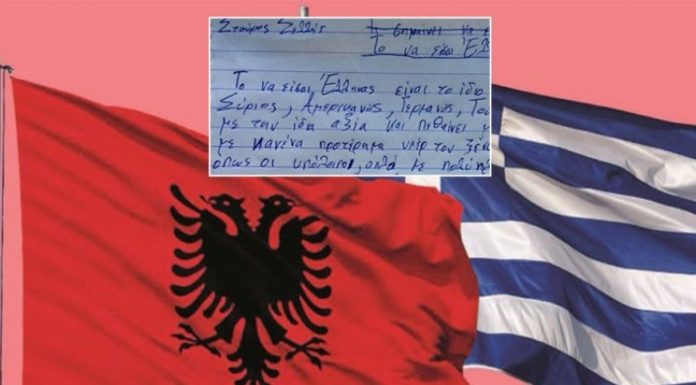 Σταύρος
Τι σημαίνει να ε
Το να είσαι Έλλ
Το να είσαι Έλληνας είναι το ίδιο
Σύριος, Αμερικανος, Γερμανος, Του
με την ίδια αξία και πεθαίνει μ
με κανένα προτέρημα υπέρ του ξένο
όπως οι υπόλοιποι, απλά με